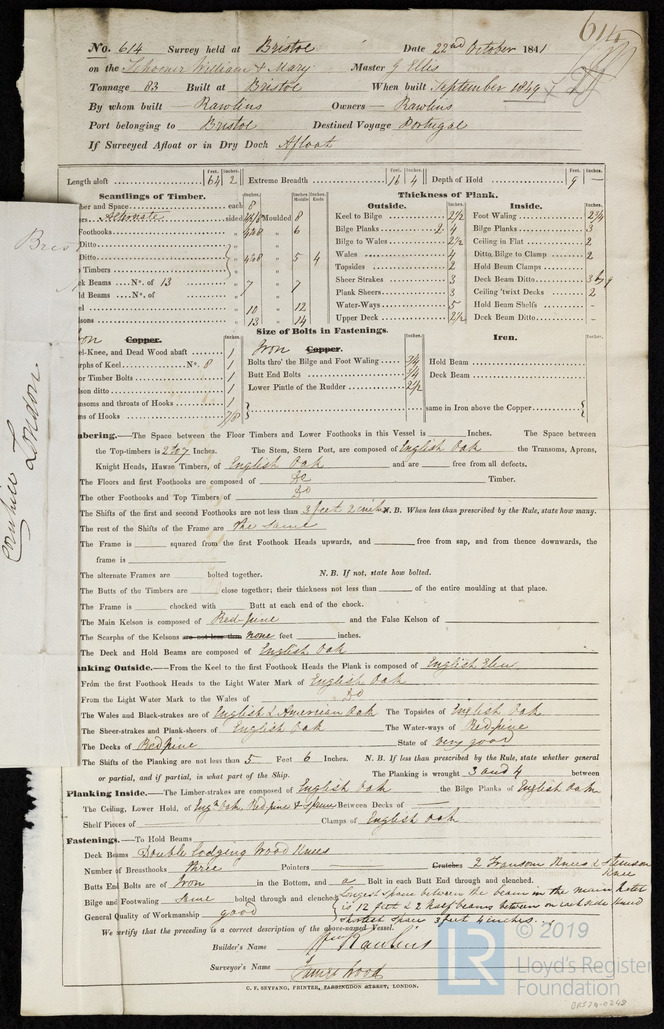 614
No. 614 Survey held at Bristol Date 22nd October 1841
on the Schooner William & Mary Master J Ellis
Tonnage 83 Built at Bristol When built September 1849
By whom built Rawlins Owners Rawlins
Port belonging to Bristol Destined Voyage Portugal
If Surveyed Afloat or in Dry Dock Afloat
Length aloft 64 2 Extreme Breadth 16 4 Depth of Hold 9 —
Feet. Inches. Feet. Inches. Feet. Inches.
Scantlings of Timber.
Thickness of Plank.
Outside. Inside.
ber and Space each 8
sided Moulded 8
Foothooks " " 6
Ditto "
Ditto " " 5 4
Timbers "
ck Beams No. of 13 " 7 " 7
ld Beams No. of "
el " 10 " 12
sons " 13 " 14
Keel to Bilge 2½ Foot Waling 2¾
Bilge Planks 2 4 Bilge Planks 3
Bilge to Wales 2½ Ceiling in Flat 2
Wales 4 Ditto, Bilge to Clamp 2
Topsides 2 Hold Beam Clamps
Sheer Strakes 3 Deck Beam Ditto 3 by 9
Plank Sheers 3 Ceiling 'twixt Decks 2
Water-Ways 5 Hold Beam Shelfs
Upper Deck 2½ Deck Beam Ditto
Size of Bolts in Fastenings.
on Copper. Iron Copper. Iron.
el-Knee, and Dead Wood abaft 1
arphs of Keel No. 8 1
or Timber Bolts 1
lson ditto 1
nsoms and throats of Hooks 1
ms of Hooks 7/8
Bolts thro' the Bilge and Foot Waling ¾ Hold Beam
Butt End Bolts ¾ Deck Beam
Lower Pintle of the Rudder 2½
same in Iron above the Copper
bering.—The Space between the Floor Timbers and Lower Foothooks in this Vessel is Inches. The Space between
the Top-timbers is 2 to 7 Inches. The Stem, Stern Post, are composed of English Oak the Transoms, Aprons,
Knight Heads, Hawse Timbers, of English Oak and are free from all defects.
The Floors and first Foothooks are composed of Do Timber.
The other Foothooks and Top Timbers of Do
The Shifts of the first and second Foothooks are not less than 3 feet 2 inches N.B. When less than prescribed by the Rule, state how many.
The rest of the Shifts of the Frame are the same
The Frame is squared from the first Foothook Heads upwards, and free from sap, and from thence downwards, the
frame is
The alternate Frames are bolted together. N.B. If not, state how bolted.
The Butts of the Timbers are close together; their thickness not less than of the entire moulding at that place.
The Frame is chocked with Butt at each end of the chock.
The Main Kelson is composed of Red-pine and the False Kelson of
The Scarphs of the Kelsons are not less than none feet inches.
The Deck and Hold Beams are composed of English Oak
anking Outside.—From the Keel to the first Foothook Heads the Plank is composed of English Elm
From the first Foothook Heads to the Light Water Mark of English Oak
From the Light Water Mark to the Wales of Do
The Wales and Black-strakes are of English & American Oak The Topsides of English Oak
The Sheer-strakes and Plank-sheers of English Oak The Water-ways of Red pine
The Decks of Red pine State of very good
The Shifts of the Planking are not less than 5 Feet 6 Inches. N.B. If less than prescribed by the Rule, state whether general
or partial, and if partial, in what part of the Ship. The Planking is wrought 3 and 4 between
Planking Inside.—The Limber-strakes are composed of English Oak the Bilge Planks of English Oak
The Ceiling, Lower Hold, of Engh Oak, Red pine & Spruce Between Decks of
Shelf Pieces of Clamps of English Oak
Fastenings.—To Hold Beams
Deck Beams Double Lodging Wood Knees
Number of Breasthooks three Pointers Crutches 2 Transom Knees & Sternson Knee
Butts End Bolts are of Iron in the Bottom, and a Bolt in each Butt End through and clenched.
Bilge and Footwaling bolted through and clenched
Longest space between the beams in the main hatch
is 12 feet & 2 half beams between on each side kneed
shortest space 3 feet 4 inches.
General Quality of Workmanship good
We certify that the preceding is a correct description of the above-named Vessel.
Builder's Name Rawlins
Surveyor's Name James Wood
C. F. SEYFANG, PRINTER, FARRINGDON STREET, LONDON.
Brist
Cornhill
London.
© 2019
LR
Lloyd's Register
Foundation
BRS74-0248